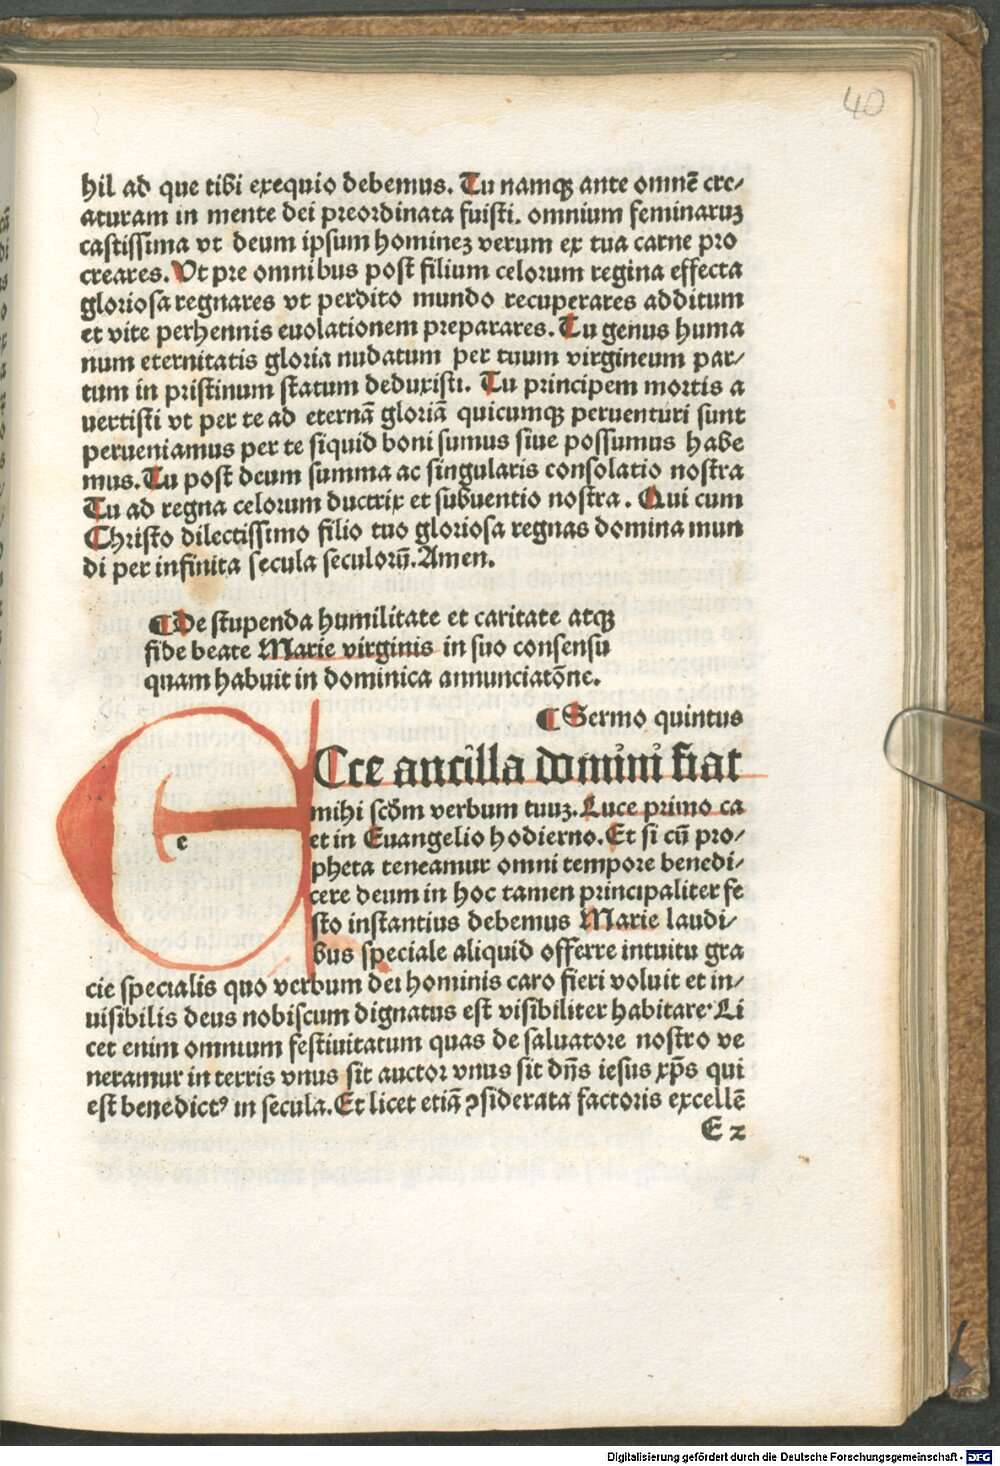 40
hil ad que tibi exequio debemus. Tu namqꝫ ante omnē cre⸗
aturam in mente dei preordinata fuisti. omnium feminaruꝫ
castissima vt deum ipsum homineꝫ verum ex tua carne pro
creares. Ut pre omnibus post filium celorum regina effecta
gloriosa regnares vt perdito mundo recuperares additum
et vite perhennis euolationem preparares. Tu genus huma
num eternitatis gloria nudatum per tuum virgineum par⸗
tum in pristinum statum deduxisti. Tu principem mortis a
uertisti vt per te ad eternā gloriā quicumqꝫ peruenturi sunt
perueniamus per te siquid boni sumus siue possumus habe
mus. Tu post deum summa ac singularis consolatio nostra
Tu ad regna celorum ductrix et subuentio nostra. Qui cum
Christo dilectissimo filio tuo gloriosa regnas domina mun
di per infinita secula seculorū. Amen.
¶ De stupenda humilitate et caritate atqꝫ
fide beate Marie virginis in suo consensu
quam habuit in dominica annunciatōne.
¶ Sermo quintus
e
ECce ancilla domini fiat
mihi scd̄m verbum tuuꝫ. Luce primo ca
et in Euangelio hodierno. Et si cū pro⸗
pheta teneamur omni tempore benedi⸗
cere deum in hoc tamen principaliter fe
sto instantius debemus Marie laudi⸗
bus speciale aliquid offerre intuitu gra
cie specialis quo verbum dei hominis caro fieri voluit et in⸗
uisibilis deus nobiscum dignatus est visibiliter habitare. Li
cet enim omnium festiuitatum quas de saluatore nostro ve
neramur in terris vnus sit auctor vnus sit dn̄s iesus xp̄s qui
est benedictꝰ in secula. Et licet etiā ꝯsiderata factoris excellē
E 2
Digitalisierung gefördert durch die Deutsche Forschungsgemeinschaft - DFG